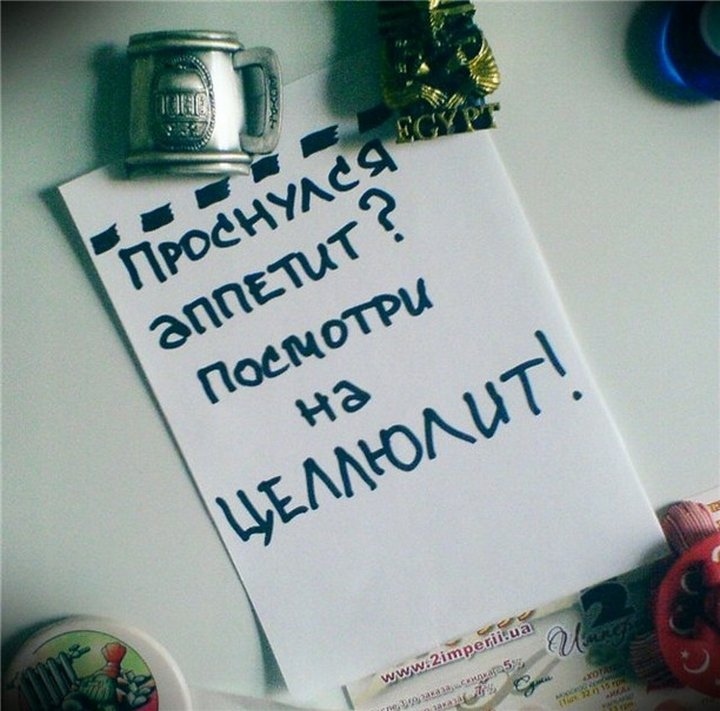 EGYPT
Проснулся
аппетит?
посмотри
на
целлюлит!
www.2imperii.ua
2